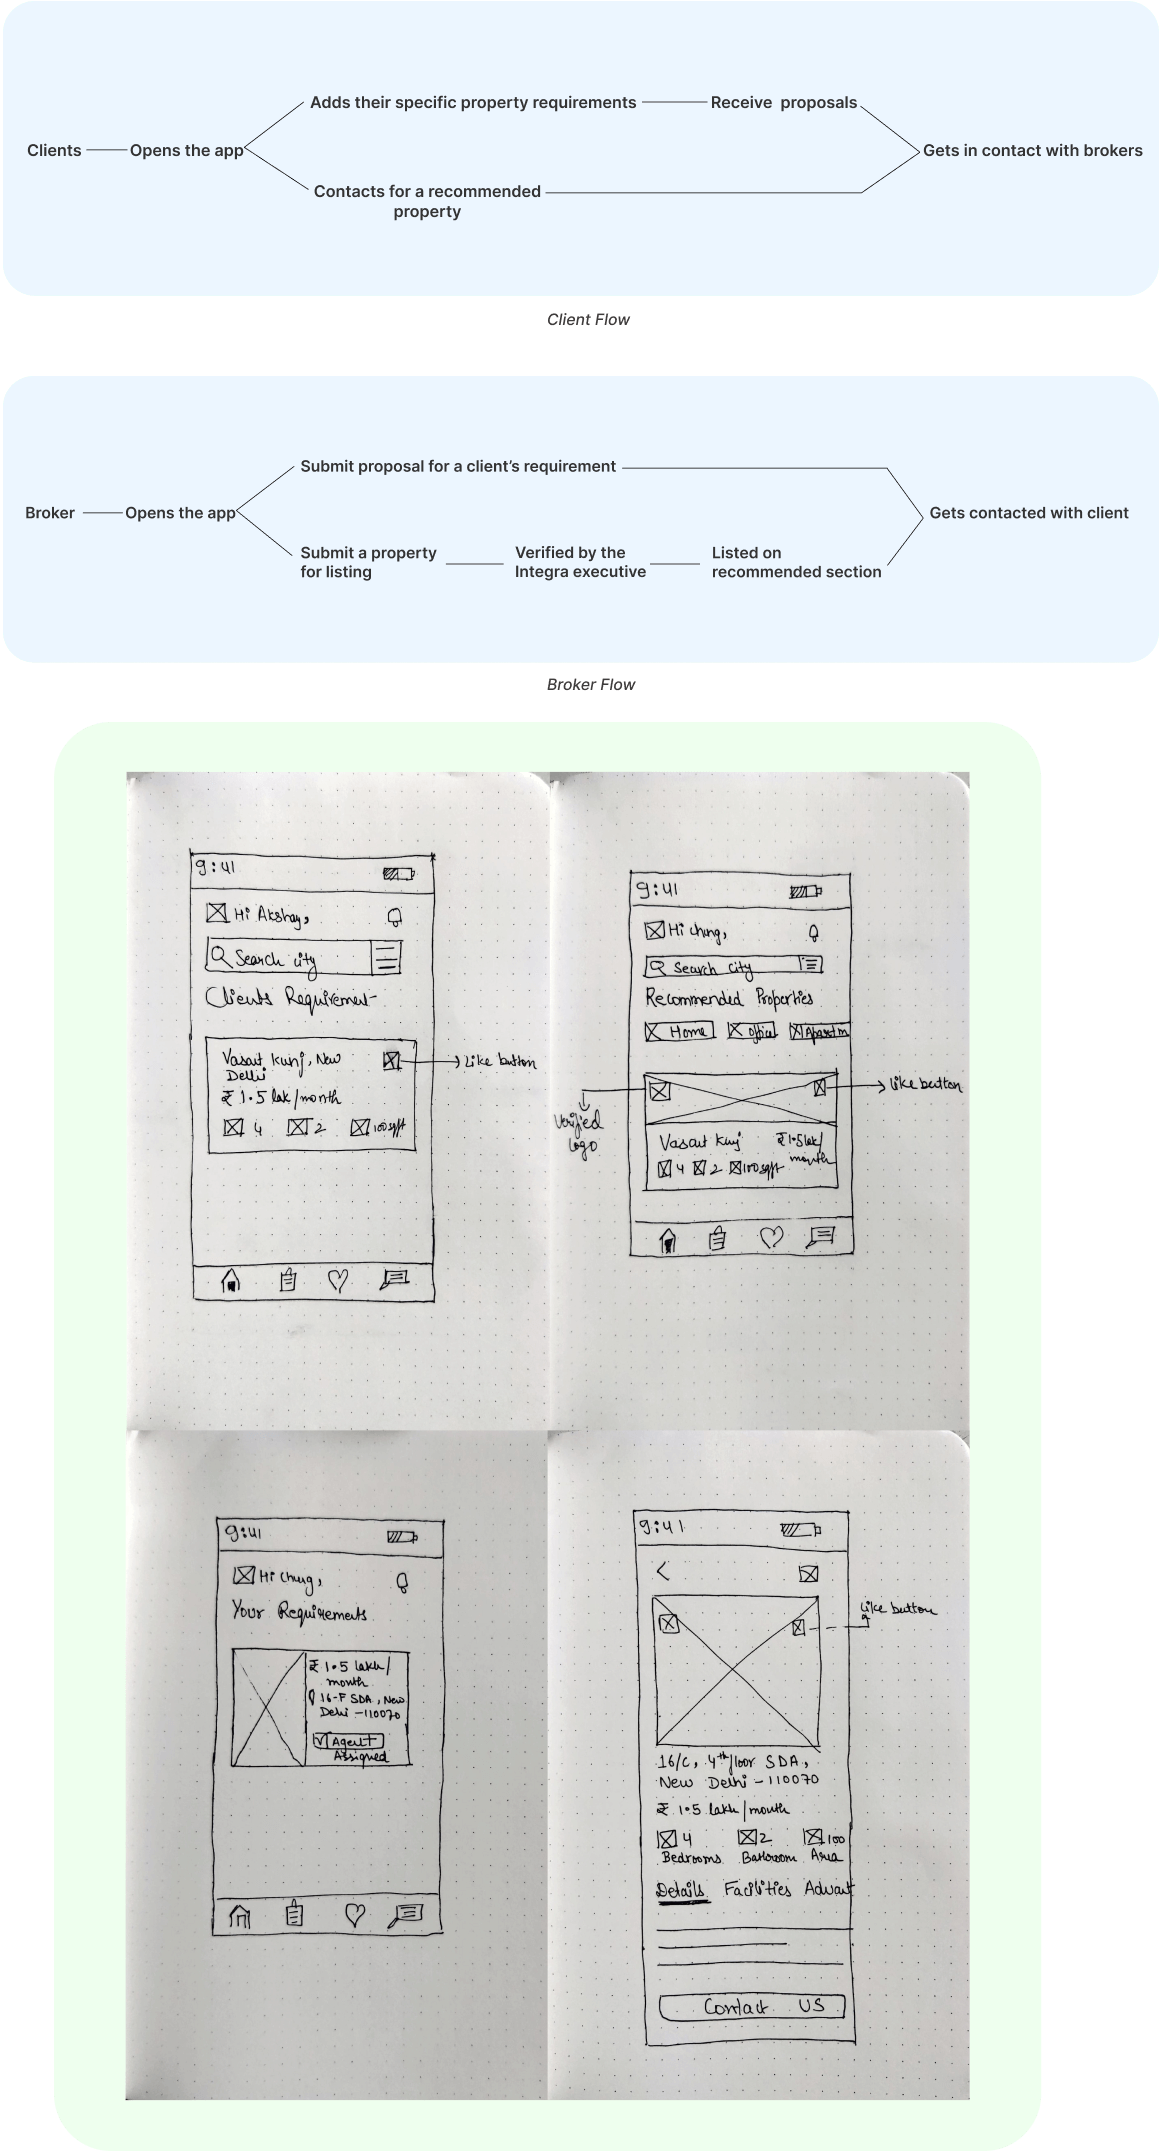 Adds their specific property requirements
Receive proposals
Clients
Opens the app
Gets in contact with brokers
Contacts for a recommended
property
Client Flow
Submit proposal for a client's requirement
Broker
Opens the app
Gets contacted with client
Submit a property
for listing
Verified by the
Integra executive
Listed on
recommended section
Broker Flow
9:41
Hi Akshay,
Search city
Clients Requirement
Vasant Kunj, New
Delhi
₹ 1.5 lak/month
4 2 100 sqft
Like button
9:41
Hi Ching,
Search city
Recommended Properties
Home Office Apartm
like button
Verified
logo
Vasant Kunj
₹1.5 lak/
month
4 2 100 sqft
9:41
Hi Ching,
Your Requirements
₹ 1.5 lakh/
month
16-F SDA, New
Delhi -110070
Agent
Assigned
9:41
Like button
16/C, 4th floor SDA,
New Delhi -110070
₹ 1.5 lakh/month
4 2 100
Bedrooms Bathroom Area
Details Facilities Advant
Contact US